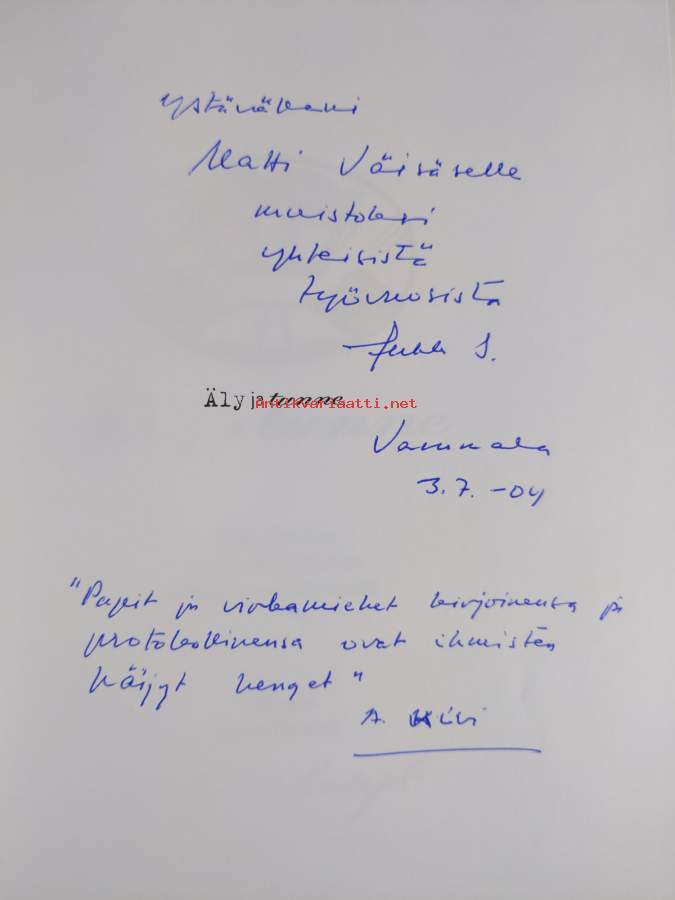 ystäväkeni
Matti Väisäselle
muistoksi
yhteisistä
työvuosista
Jukka S.
Äly ja tunne
Antikvariaatti.net
Vammala
3.7. -04
"Papit ja virkamiehet kirjoinensa ja
protokollinensa ovat ihmisten
häijyt henget"
A. Kivi